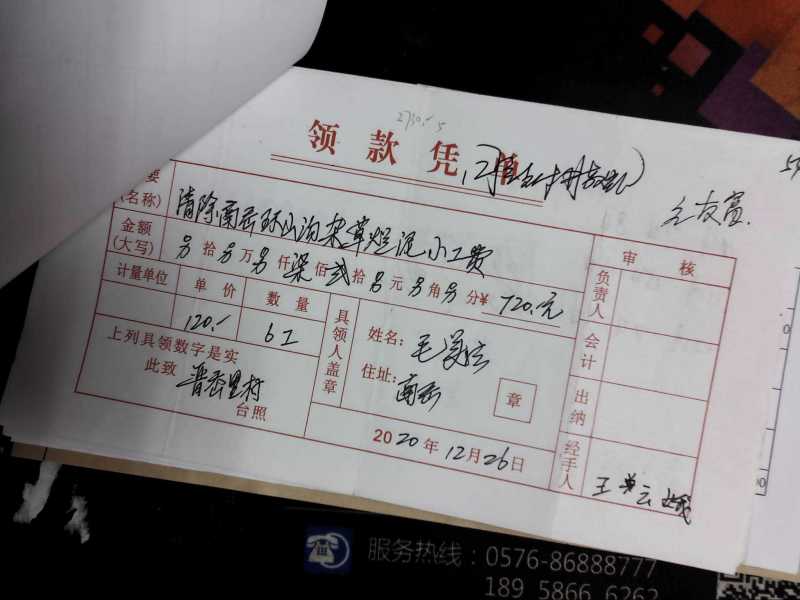 2730.-
领款凭单
要
(名称)
清除南岙环山沟杂草烂泥小工费
金额
(大写)
拾 万 仟 柒 佰 贰 拾 元 角 分 ¥ 720.元
计量单位 单价 数量
120.- 6工
上列具领数字是实
此致
普岙里村
台照
具领人盖章
姓名:毛
住址:南岙
章
2020年12月26日
审核
负责人
会计
出纳
经手人
王 云
服务热线:0576-86888777
189 5866 6262